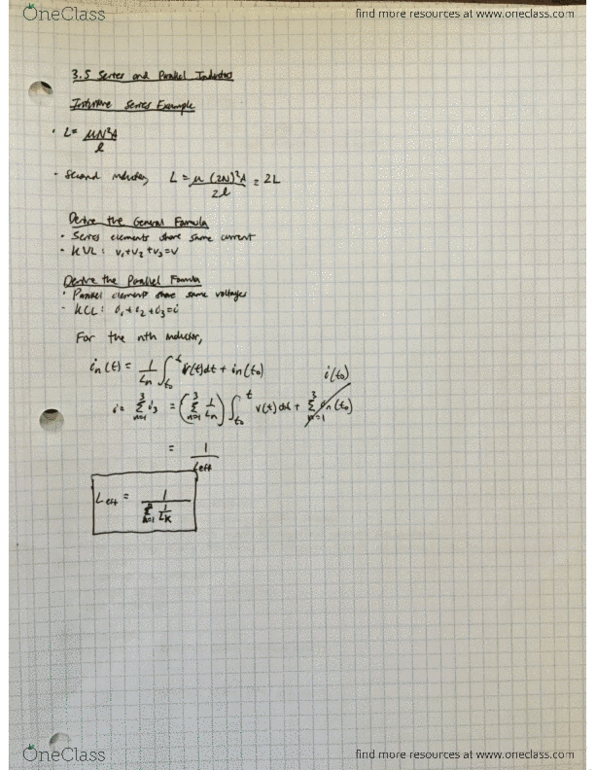 OneClass
find more resources at www.oneclass.com
3.5 Series and Parallel Inductors
Intuitive Series Example
· L = μN²A / l
- Second inductor, L = μ(2N)²A / 2l = 2L
Derive the General Formula
· Series elements share same current
· KVL: v₁+v₂+v₃=v
Derive the Parallel Formula
· Parallel elements share same voltages
- KCL: i₁+i₂+i₃=i
For the nth inductor,
iₙ(t) = 1/Lₙ ∫ₜ₀ᵗ v(t)dt + iₙ(t₀)
i(t₀)
i = Σₙ₌₁³ i₃ = (Σₙ₌₁³ 1/Lₙ) ∫ₜ₀ᵗ v(t)dt + Σₙ₌₁³ iₙ(t₀)
= 1/Leff
Leff = 1 /
OneClass
find more resources at www.oneclass.com